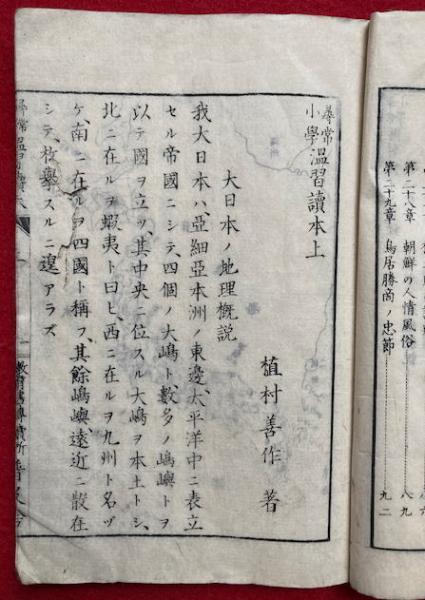 第二十八章 朝鮮の人情風俗 八九
第二十九章 鳥居勝商ノ忠節 九二
尋常小學溫習讀本上
植村善作 著
大日本ノ地理概説
我大日本ハ、亞細亞本洲ノ東邊、太平洋中ニ表立
セル帝國ニシテ、四個ノ大嶋ト數多ノ嶋嶼トヲ
以テ國ヲ立ツ、其中央ニ位スル大嶋ヲ本土トシ、
北ニ在ルヲ蝦夷ト曰ヒ、西ニ在ルヲ九州ト名ヅ
ケ、南ニ在ルヲ四國ト稱フ、其餘嶋嶼、遠近ニ散在
シテ、枚擧スルニ遑アラズ